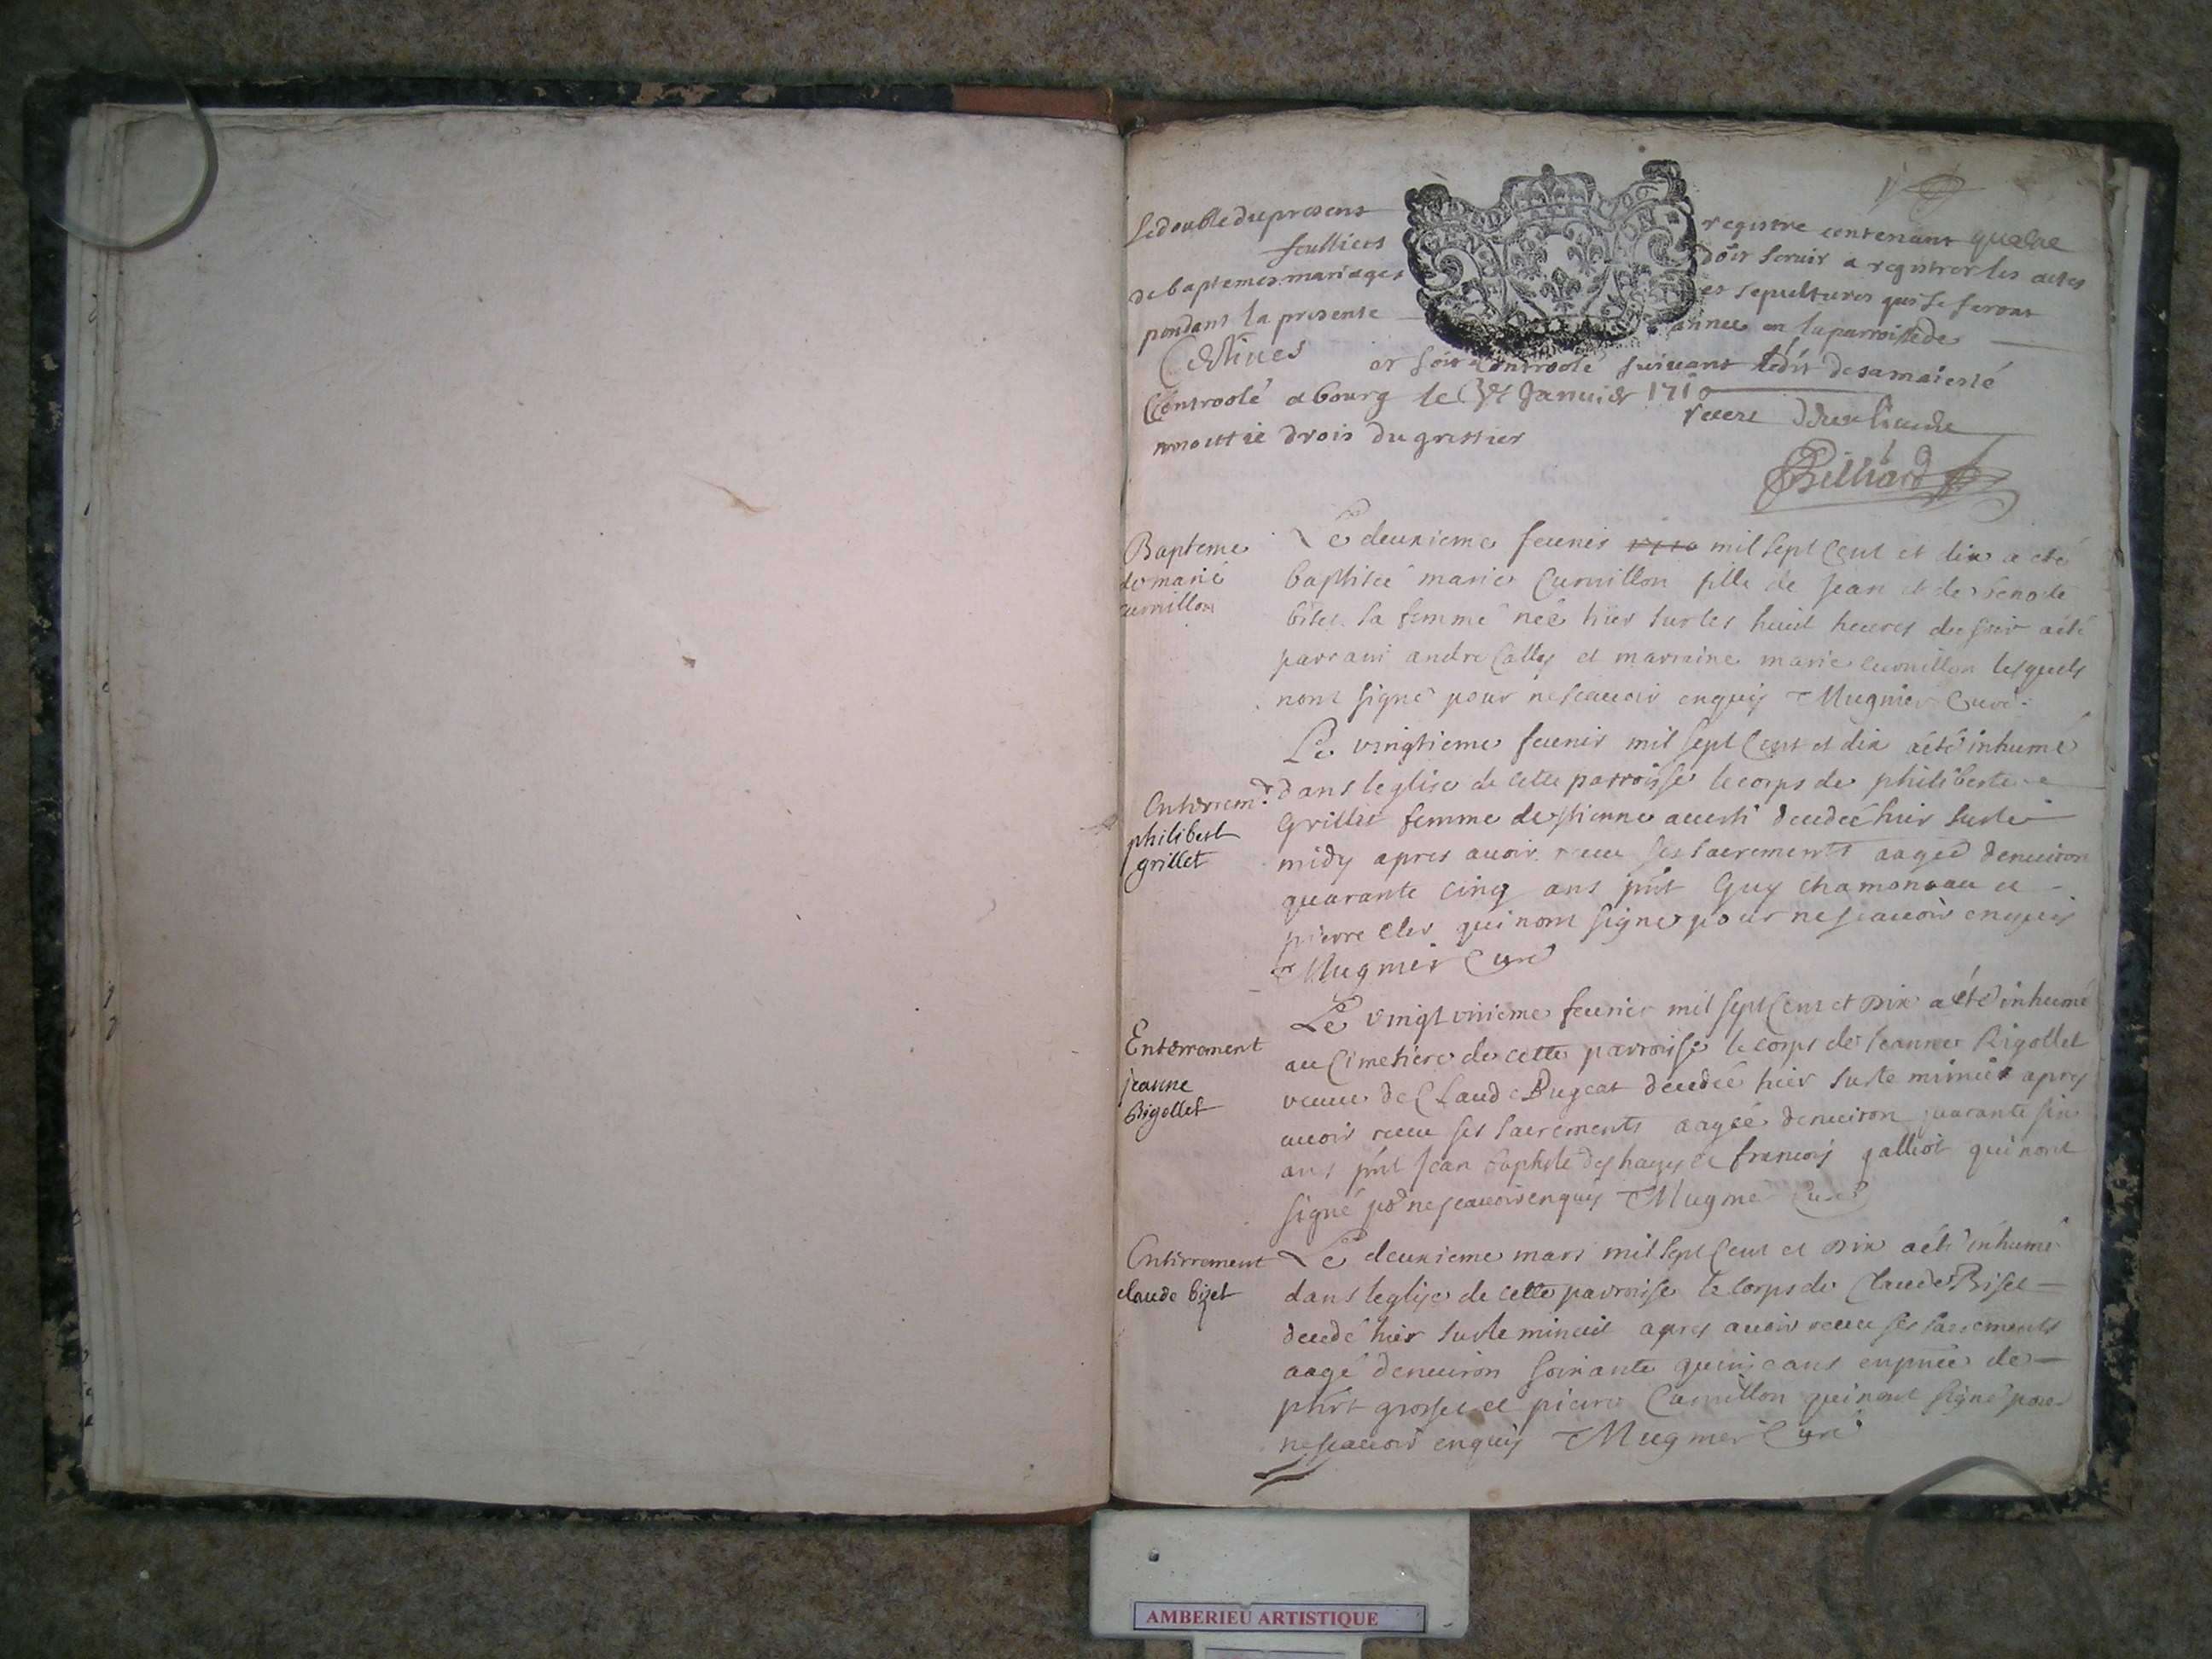 Le double du present registre contenant quatre
feulliets doit servir a registrer les actes
de baptemes mariages et sepultures qui se feront
pendant la presente annee en la parroisse de
et soit controolé suivant l'edit de sa majesté
Controolé a bourg le Janvier 1710
moettie droit du greffier
Billiard
Bapteme
de marie
curnillon
Le deuxieme fevrier mil sept Cent et dix a eté
baptisée marie Curnillon fille de jean et de benoite
biset sa femme née hier sur les huict heures du soir a eté
parrain andre et marraine marie curnillon lesquels
nont signé pour ne scavoir enquis Mugnier Curé
Enterrem.t
philibert
grillet
Le vingtieme fevrier mil sept Cent et dix a eté inhumé
dans leglise de cette parroisse le corps de philiberte
Grillet femme destienne decedée hier sur le
midy apres avoir receu ses sacrements aagée denviron
quarante cinq ans pnt Guy chamoneau et
pierre qui nont signé pour ne scavoir enquis
Mugnier Curé
Enterrement
jeanne
Rigollet
Le vingt unieme fevrier mil sept Cent et Dix a été inhumé
au Cimetiere de cette parroisse le corps de Jeanne Rigollet
veuve de Claude Bugeat decedée hier sur le minuit apres
avoir receu ses sacrements aagée denviron quarante six
ans pnt Jean baptiste deshayes et francois galliot qui nont
signé pr ne scavoir enquis Mugnié Curé
Enterrement
claude bizet
Le deuxieme mars mil sept Cent et Dix a eté inhumé
dans leglise de cette parroisse le corps de Claude Biset
decedé hier sur le minuit apres avoir receu ses sacrements
aagé denviron soixante quinze ans en pnce de
phirt grosset et pierre Curnillon qui nont signé pour
ne scavoir enquis Mugnier Curé
AMBERIEU ARTISTIQUE